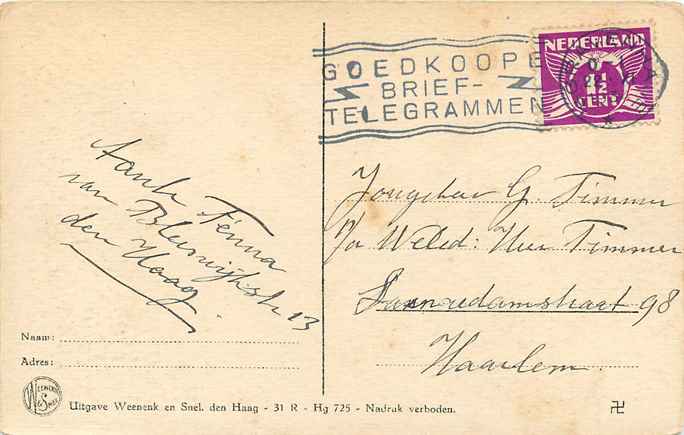 GOEDKOOPE
BRIEF-
TELEGRAMMEN
NEDERLAND
1½
CENT
Tante Fenna
van Bleiswijkstr 13
den Haag.
Jongeheer G. Timmer
p/a Weled: Heer Timmer
Zaanedamstraat 98
Haarlem.
Naam:
Adres:
Uitgave Weenenk en Snel. den Haag - 31 R - Hg 725 - Nadruk verboden.